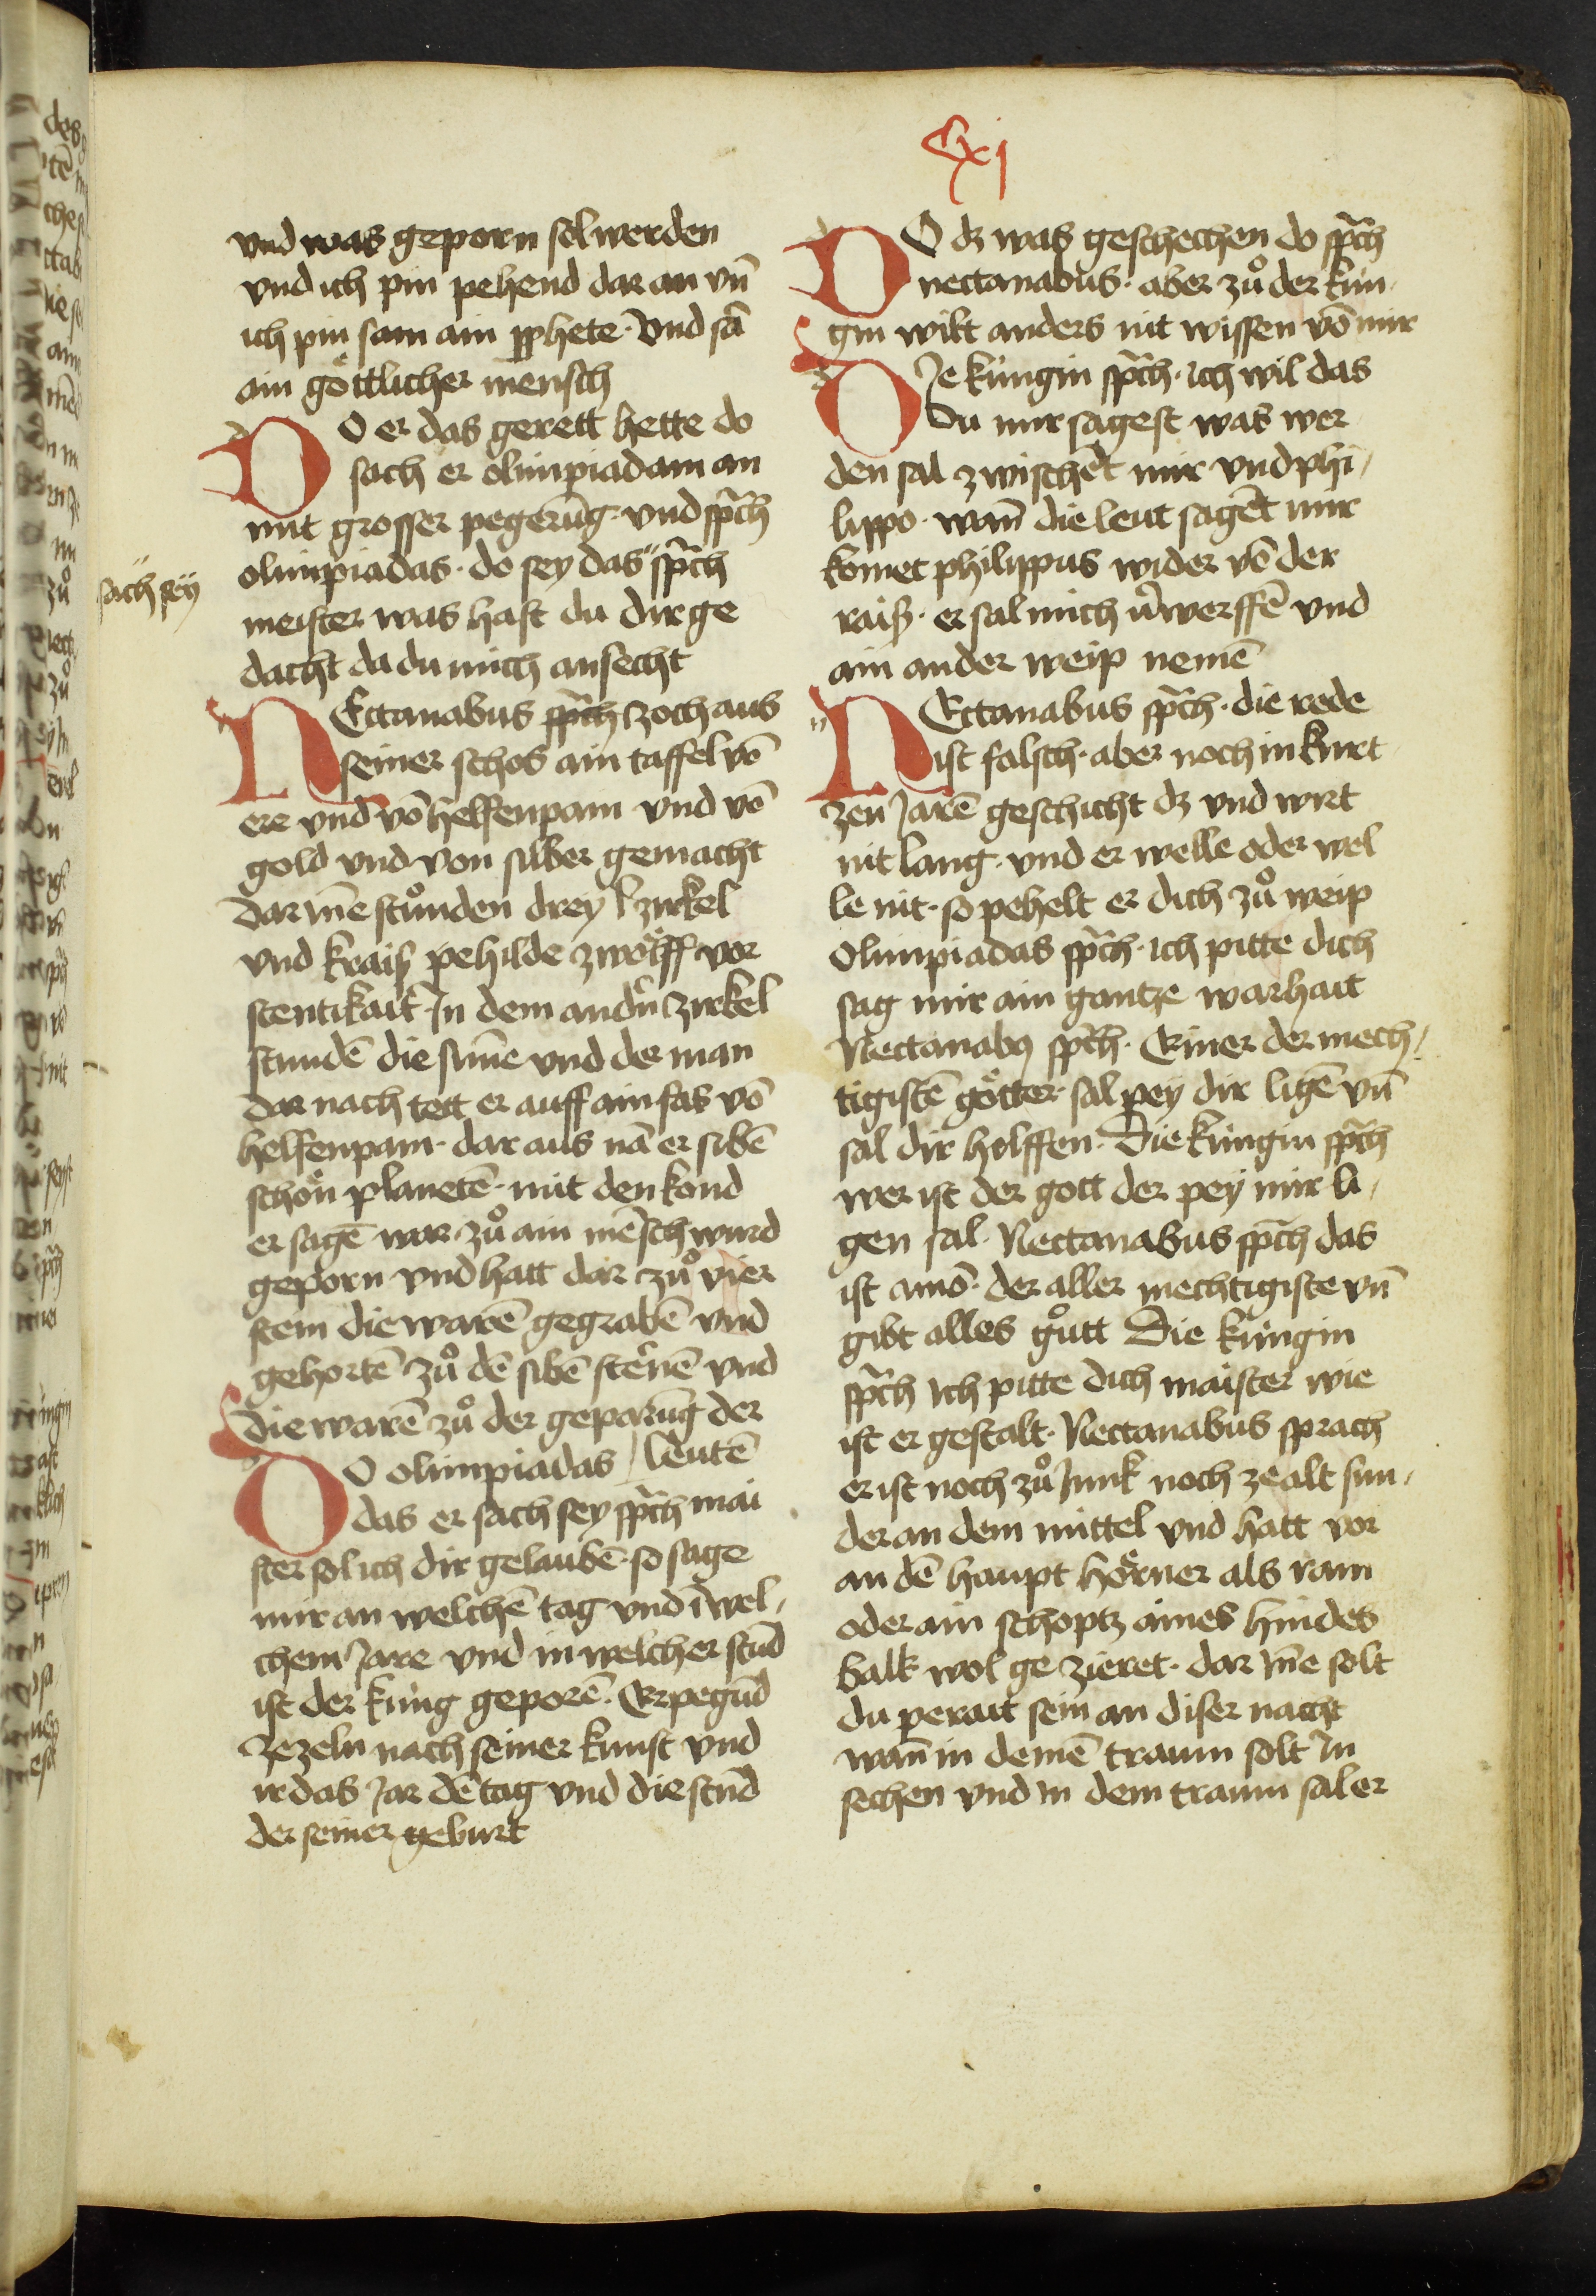 xj
vnd was geporn sol werden
vnd ich pin pehend dar an vn̄
ich pin sam ain ꝓphete · vnd sā
ain göttlicher mensch
DO er das gerett hette do
sach er olimpiadam an
mit grosser pegerūg · vnd sp̄ch
olimpiadas · do sey das " sp̄ch
sach sey
meister was hast du dir ge
dacht da du mich ansecht
NEctanabus sp̄ch zoch aus
seiner schos ain taffel vō
ere vnd vō helfenpain vnd vō
gold vnd von silber gemacht
dar Īne stůnden drey zirkel
vnd kraiß pehilde zwölff vor
stentikait In dem andn̄ zirkel
stundē die sunne vnd der man
dar nach tett er auff ain fas vō
helfenpain · dar aus nā er sibē
schön planetē · mit den kond
er sagē war zů ain mēsch wurd
geporn vnd hatt dar zů vier
stein die warē gegrabē vnd
gehortē zů dē sibē sternē vnd
die warē zů der geparūg der
DO olimpiadas / leutē
das er sach sey sp̄ch mai
ster sol ich dir gelaubē · so sage
mir an welchē tag vnd ī wel /
chem Jare vnd in welcher stūd
ist der küng geporē · Er pegūd
zezeln nach seiner kunst vnd
ir das Jar dē tag vnd die stūd
der seiner geburt
DO dz was geschechen do sp̄ch
nectanabus · aber zů der kün ·
gin wilt anders nit wissen vō mir
DIe küngin sp̄ch · ich wil das
du mir sagest was wer
den sal zwischēt mir vnd phi /
lippo · wan̄ die leut sagēt mir
komet philippus wider vō der
raiß · er sal mich v̄werffē vnd
ain ander weip nemē
NEctanabus sp̄ch · die rede
ist falsch · aber noch in kurt
zen Jarē geschicht dz vnd wirt
nit lang · vnd er welle oder wel
le nit · so pehelt er dich zů weip
Olimpiadas sp̄ch · ich pitte dich
sag mir ain gantze warhait
Nectanabꝰ sp̄ch · Einer der mech /
tigistē götter · sal pey dir ligē vn̄
sal dir helffen · Die küngin sp̄ch
wer ist der gott der pey mir li /
gen sal · Nectanabus sp̄ch das
ist amō · der aller mechtigiste vn̄
gibt alles gůtt Die küngin
sp̄ch ich pitte dich maister wie
ist er gestalt · Nectanabus sprach
er ist noch zů Junk noch ze alt sun /
der an dem mittel vnd hatt vor
an dē haupt hörner als ram
oder ain schoptz aines hindes
balk wol ge zieret · dar Īne solt
du perait sein an diser nacht
wan̄ in deinē traum solt In
sechen vnd in dem traum sal er